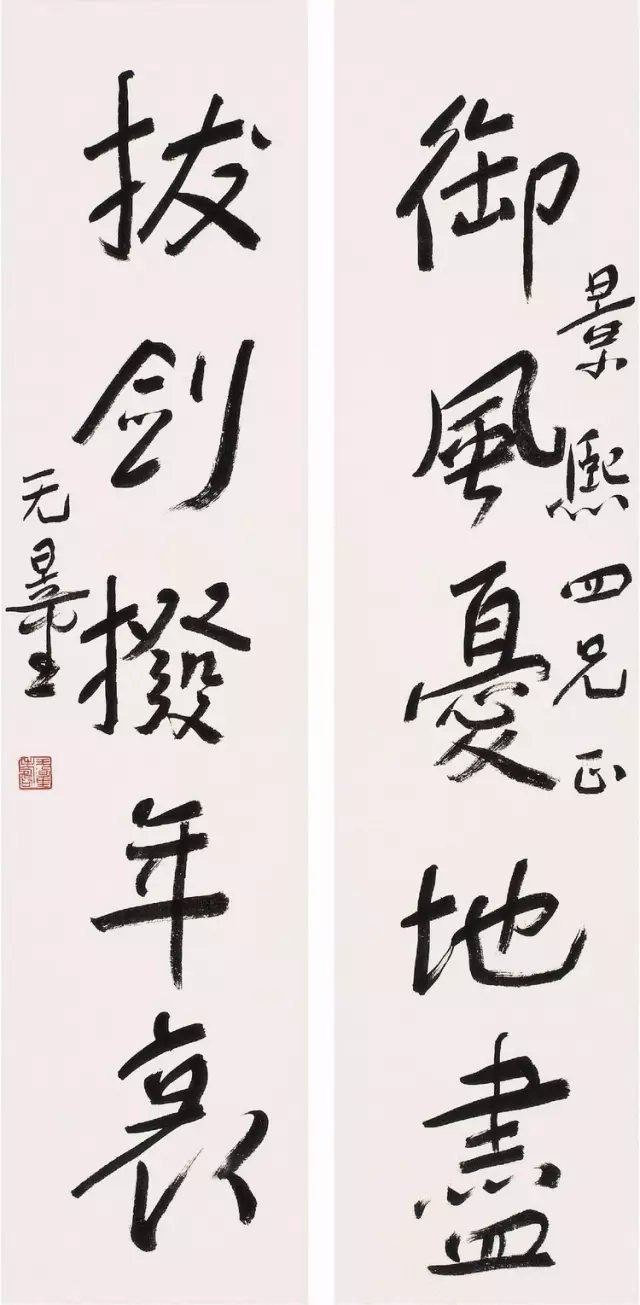 景熙四兄正
御風憂地盡
拔剑撥年衰
无量